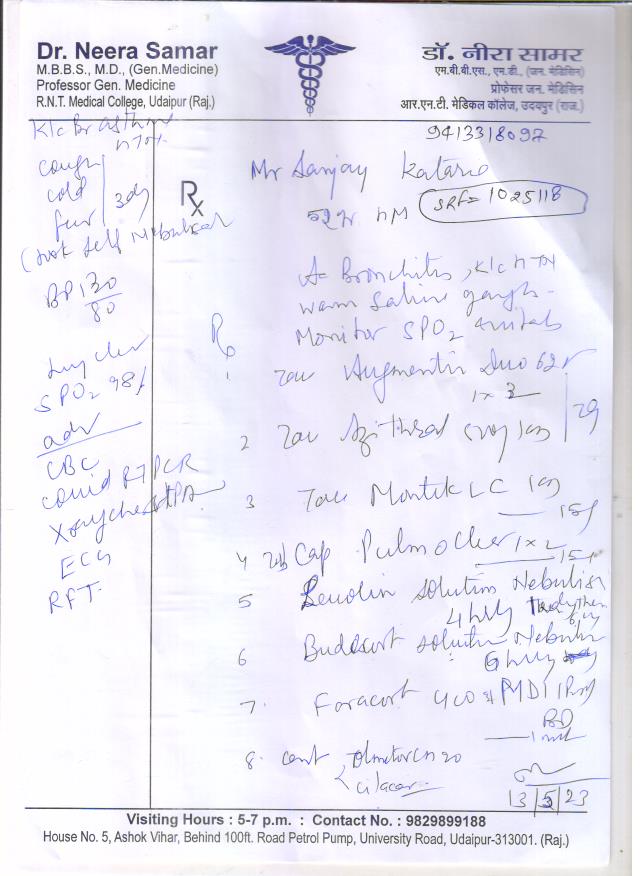 Dr. Neera Samar
M.B.B.S., M.D., (Gen.Medicine)
Professor Gen. Medicine
R.N.T. Medical College, Udaipur (Raj.)
डॉ. नीरा सामर
एम.बी.बी.एस., एम.डी., (जन. मेडिसिन)
प्रोफेसर जन. मेडिसिन
आर.एन.टी. मेडिकल कॉलेज, उदयपुर (राज.)
9413318097
K/c Br asthma
HTN
cough
cold
fever
3d
self Nebulised
BP 130/80
SPO2 98%
adv
CBC
Covid RTPCR
Xray chest PA
ECG
RFT
Rx
Mr Sanjay Kataria
52 yr
SRF= 1025118
Bronchitis, K/c HTN
warm saline gargle
Monitor SPO2 vitals
Rx
1 Tab Augmentin Duo 625
2 Tab Azithral
3 Tab Montek LC
4 Cap Pulmoclear 1x2
5 solution Nebulise
4 hrly
6 Budecort solution
6 hrly
7. Foracort 400 MDI
BD
8. cont Olmetor CH 20
Cilacar
13/5/23
Visiting Hours : 5-7 p.m. : Contact No. : 9829899188
House No. 5, Ashok Vihar, Behind 100ft. Road Petrol Pump, University Road, Udaipur-313001. (Raj.)